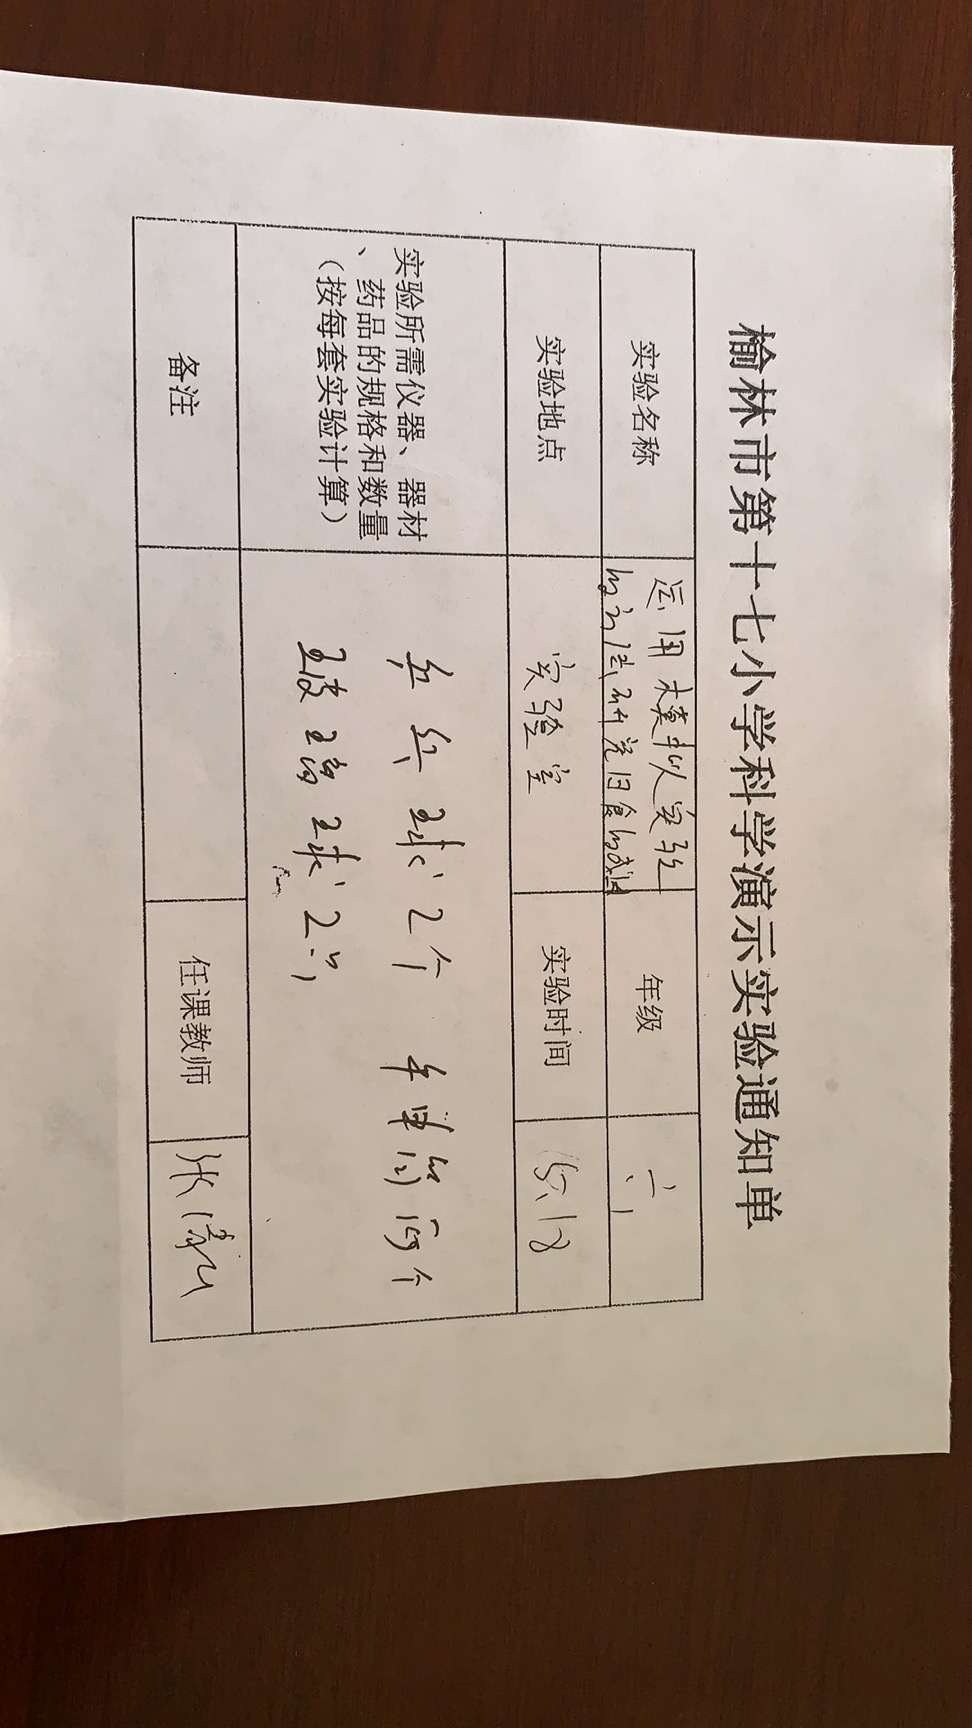 榆林市第十七小学科学演示实验通知单
实验名称
运用模拟实验
的方法研究日食的成因
年级
六
实验地点
实验室
实验时间
5.18
实验所需仪器、器材
、药品的规格和数量
（按每套实验计算）
乒乓球2个 手电筒 个
玻璃球2个
备注
任课教师
张